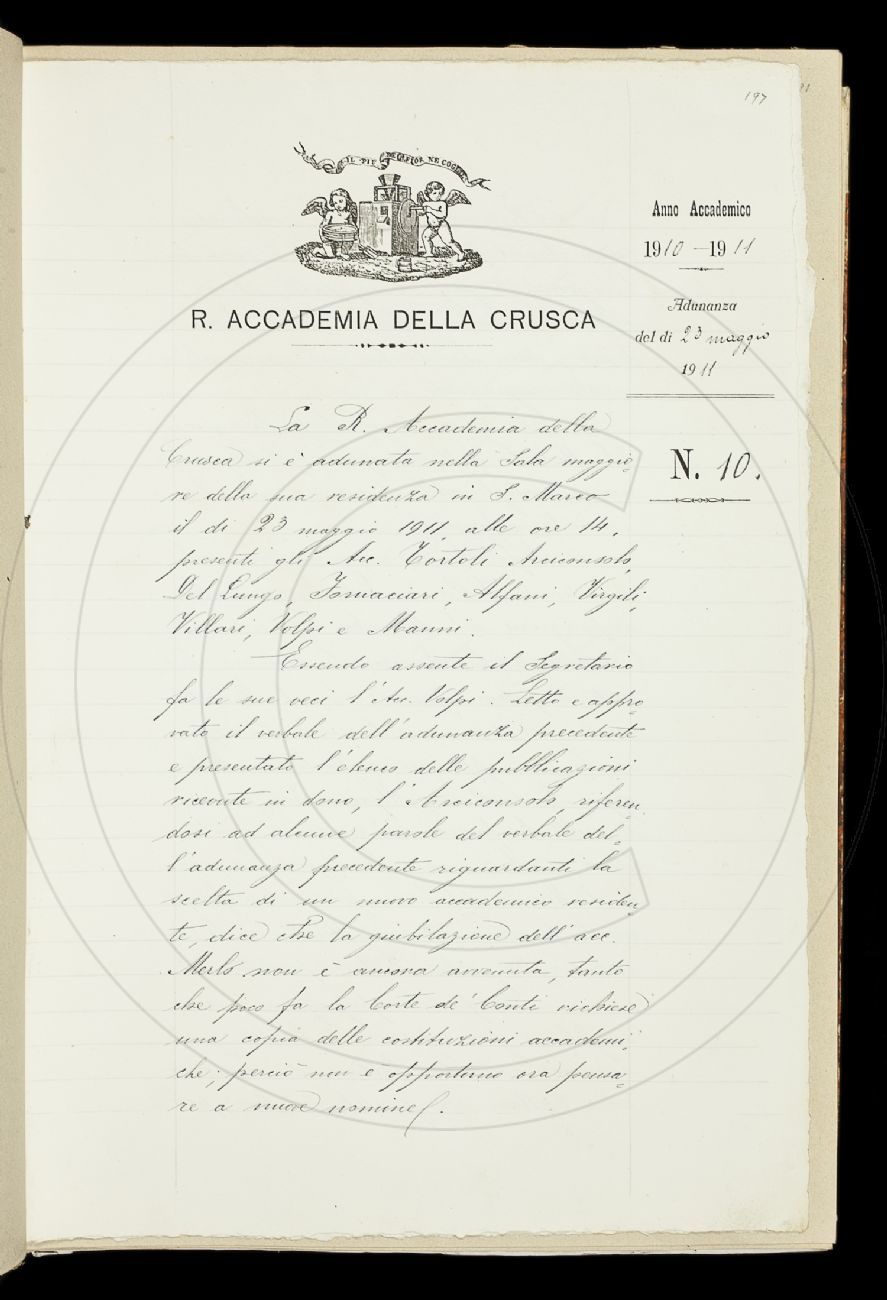 197
IL PIÙ BEL FIOR NE COGLIE
Anno Accademico
1910-1911
Adunanza
del dì 23 maggio
1911
R. ACCADEMIA DELLA CRUSCA
N. 10.
La R. Accademia della
Crusca si è adunata nella Sala maggio-
re della sua residenza in S. Marco
il dì 23 maggio 1911, alle ore 14,
presenti gli Acc. Tortoli Arciconsolo,
Del Lungo, Fornaciari, Alfani, Virgili,
Villari, Volpi e Manni.
Essendo assente il Segretario
fa le sue veci l'Acc. Volpi. Letto e appro-
vato il verbale dell'adunanza precedente
e presentato l'elenco delle pubblicazioni
ricevute in dono, l'Arciconsolo, riferen-
dosi ad alcune parole del verbale del-
l'adunanza precedente riguardanti la
scelta di un nuovo accademico residen-
te, dice che la giubilazione dell'acc.
Merlo non è ancora avvenuta, tanto
che poco fa la Corte de' Conti richiese
una copia delle costituzioni accademi-
che; perciò non è opportuno ora pensa-
re a nuove nomine.